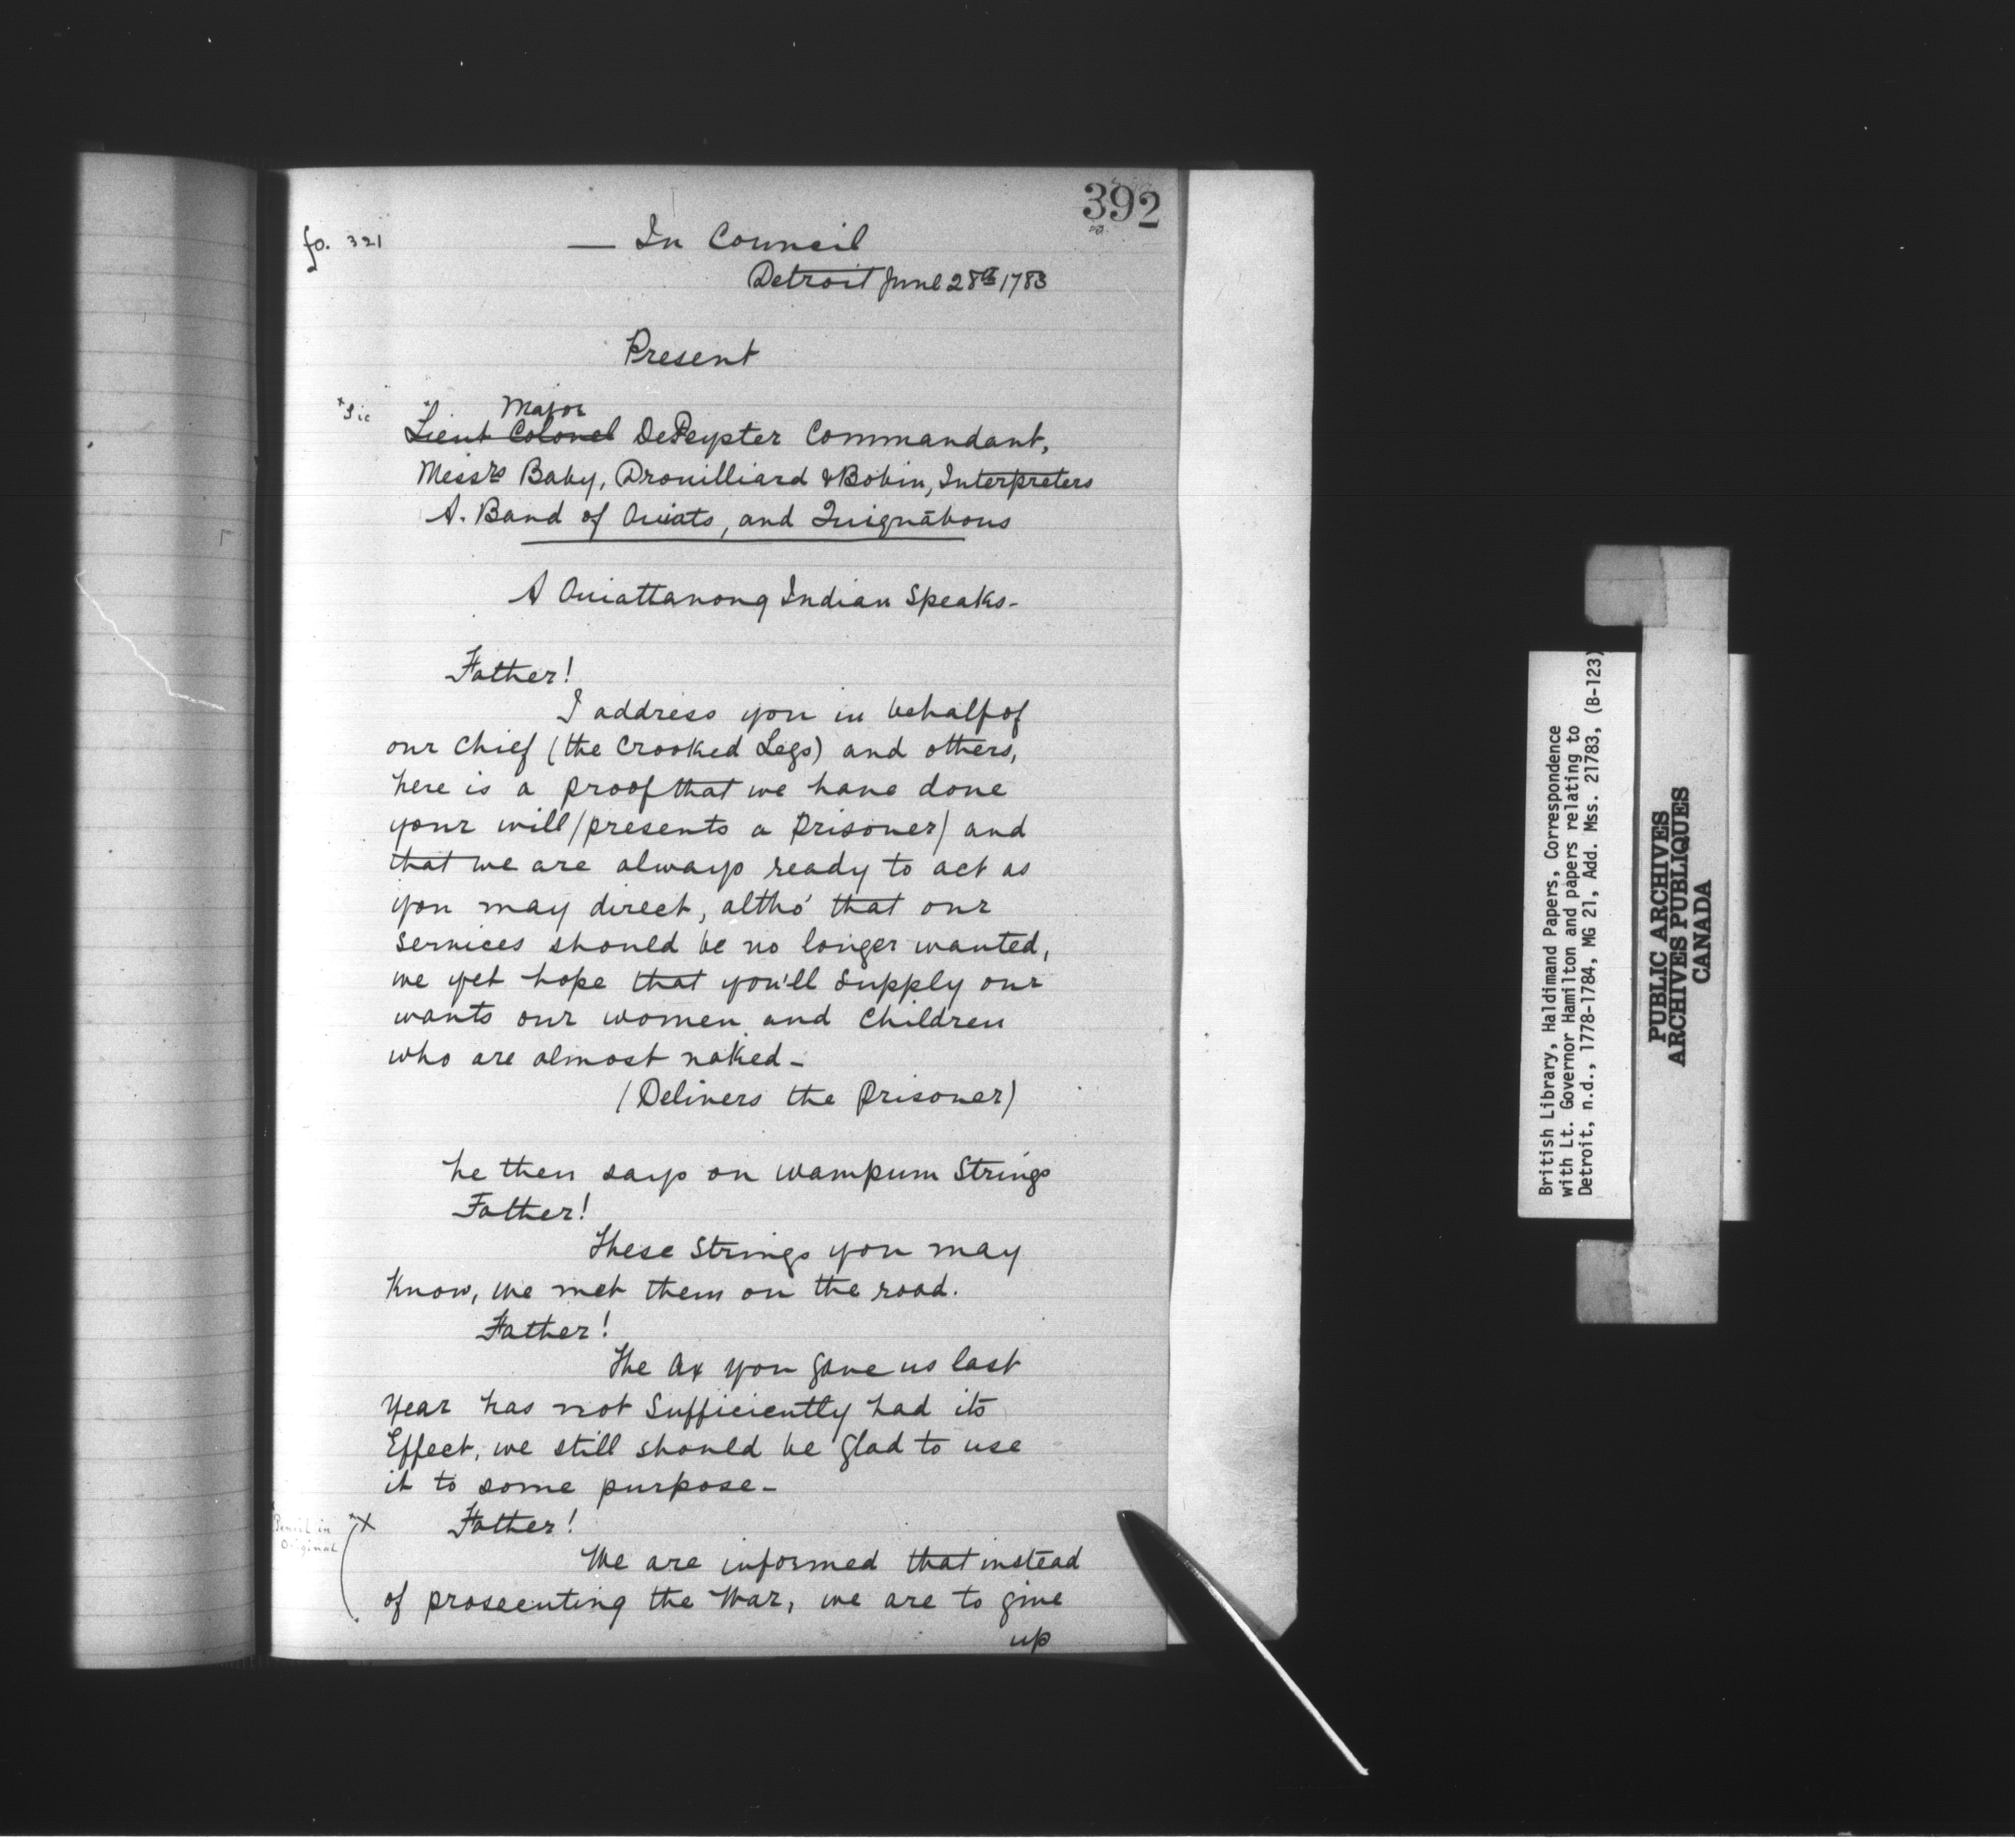 392
fo. 321
— In Council
Detroit June 28th 1783
Present
x Sic
Major
x Lieut Colonel DePeyster Commandant,
Messrs Baby, Drouilliard & Bobin, Interpreters
A. Band of Ouiats, and Quiquābous
A Ouiattanong Indian Speaks-
Father!
I address you in behalf of
our Chief (the Crooked Legs) and others,
here is a proof that we have done
your will (presents a prisoner) and
that we are always ready to act as
you may direct, altho' that our
Services should be no longer wanted,
we yet hope that you'll supply our
wants our women and Children
who are almost naked-
(Delivers the Prisoner)
he then says on Wampum Strings
Father!
These Strings you may
Know, we met them on the road.
Father!
The Ax you gave us last
Year has not Sufficiently had its
Effect, we still should be glad to use
it to some purpose-
Pencil in
Original
x
Father!
We are informed that instead
of prosecuting the War, we are to give
up
British Library, Haldimand Papers, Correspondence
with Lt. Governor Hamilton and papers relating to
Detroit, n.d., 1778-1784, MG 21, Add. Mss. 21783, (B-123)
PUBLIC ARCHIVES
ARCHIVES PUBLIQUES
CANADA